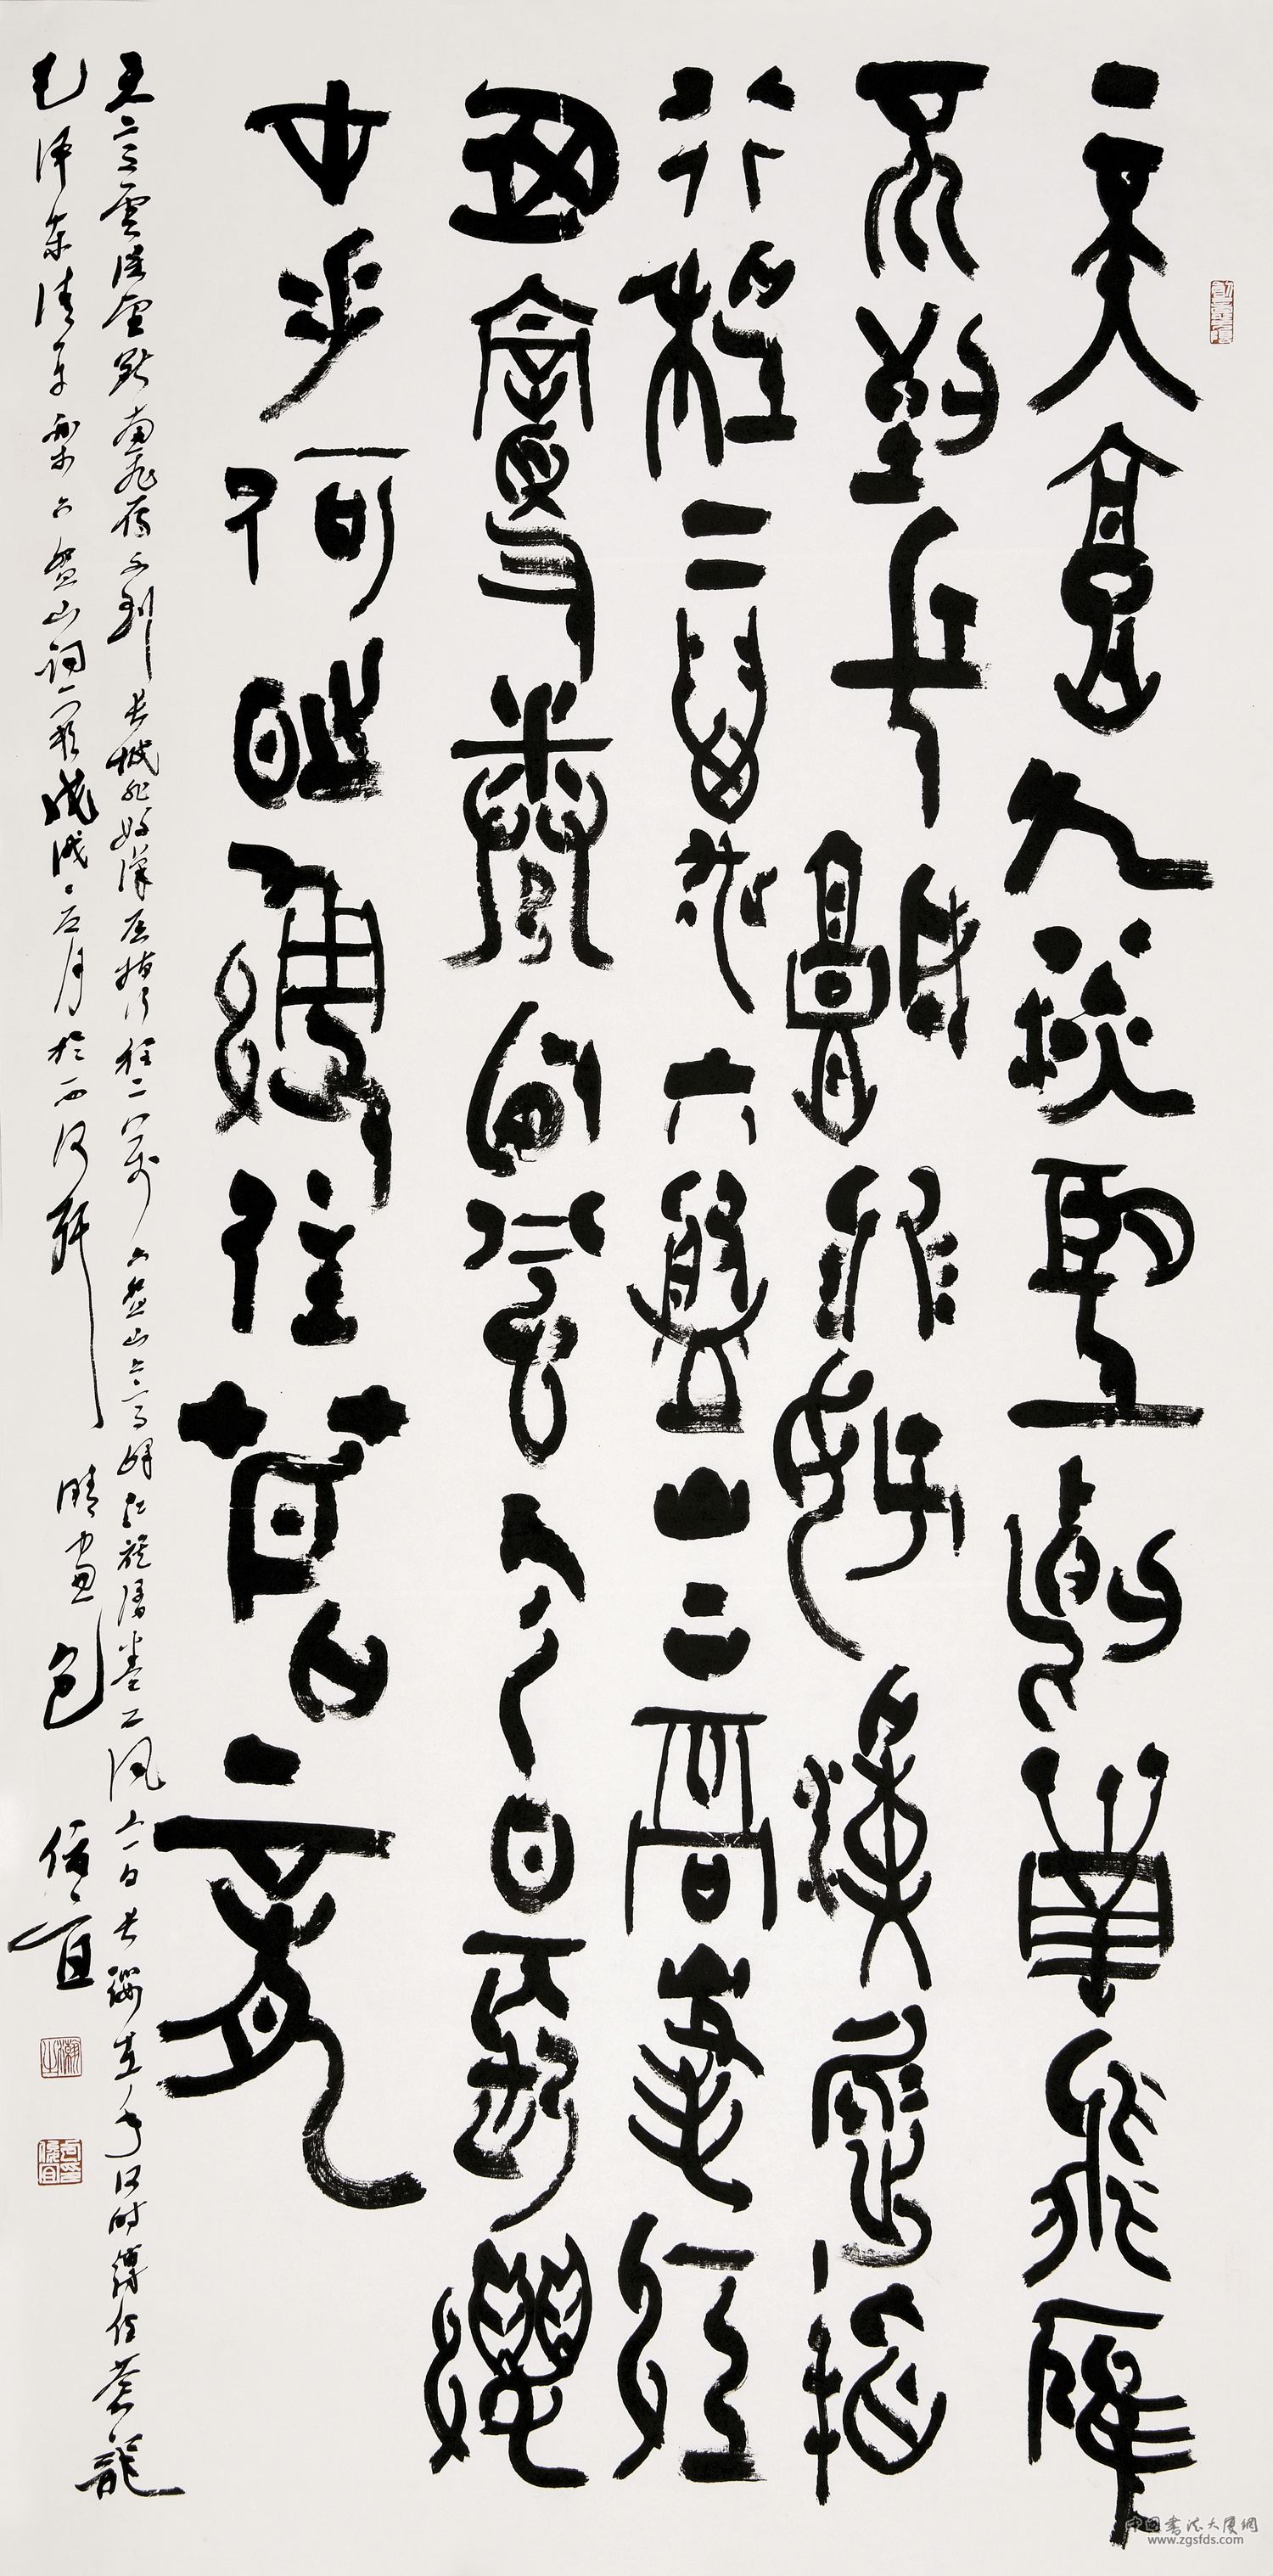 天高云淡望斷南飛雁
不到長城非好漢屈指
行程二萬六盤山上高峰紅
旗漫卷西風今日長纓
在手何時縛住蒼龍
天高雲淡望斷南飛雁不到長城非好漢屈指行程二萬六盤山上高峰紅旗漫卷西風今日長纓在手何時縛住蒼龍
毛澤東清平樂六盤山詞一首戊戌五月於西河軒晴窗包俊宜
中国書法大厦網
www.zgsfds.com